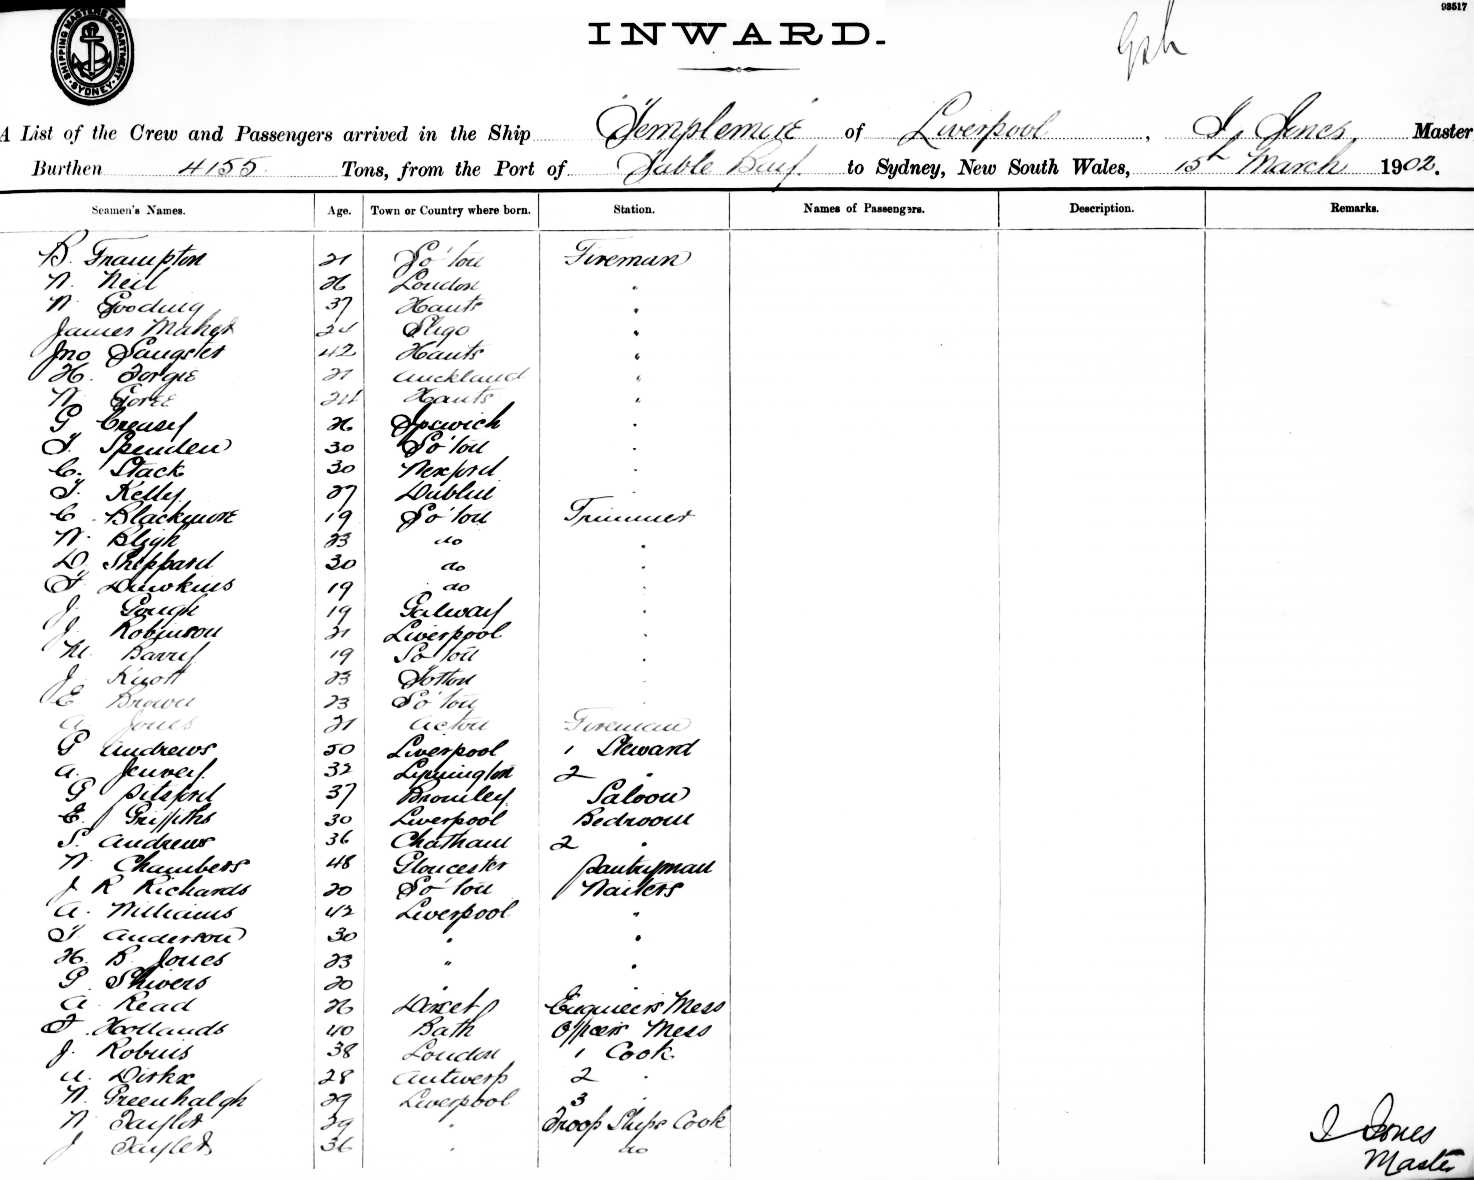 93517
SHIPPING MASTERS DEPARTMENT SYDNEY
INWARD.
A List of the Crew and Passengers arrived in the Ship Templemore of Liverpool, I Jones, Master
Burthen 4155 Tons, from the Port of Table Bay to Sydney, New South Wales, 15th March 1902.
Seamen's Names. Age. Town or Country where born. Station. Names of Passengers. Description. Remarks.
B. Frampton 21 So'ton Fireman
W. Neil 26 London "
W Gooding 37 Hants "
James Maher 24 Sligo "
Jno Sangster 42 Hants "
H. Forgie 21 Auckland "
W. Goree 24 Hants "
G Creasey 26 Ipswich "
T. Spenden 30 So'ton "
C. Stack 30 Wexford "
T. Kelly 27 Dublin "
C. Blackmore 19 So'ton Trimmer
W. Bligh 23 do "
D. Sheppard 30 do "
T. Dawkins 19 do "
J. Gough 19 Galway "
J. Robinson 21 Liverpool "
M. Barry 19 So'ton "
J. Knott 23 Totton "
E Brown 23 So'ton "
A. Jones 21 Acton Fireman
G Andrews 50 Liverpool 1 Steward
A. Jenvey 32 Lymington 2 "
G Pitsford 37 Bromley Saloon
E. Griffiths 30 Liverpool Bedroom
S. Andrews 36 Chatham 2 "
W. Chambers 48 Gloucester Pantryman
J R Richards 20 So'ton Waiters
A. Williams 42 Liverpool "
T. Anderson 30 " "
H. B. Jones 23 " "
G. Shivers 20 " "
A. Read 26 Dorset Engineers Mess
T. Hollands 40 Bath Officers Mess
J. Robins 38 London 1 Cook
A. Dirkx 28 Antwerp 2 "
W. Greenhalgh 29 Liverpool 3 "
W Taylor 29 " Troop Ships Cook
J Taylor 36 " do
I Jones
Master